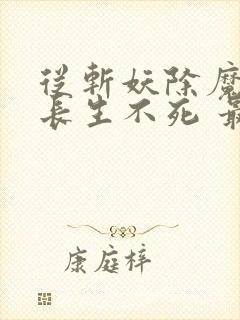 從斬妖除魔
長生不死 最
康庭梓